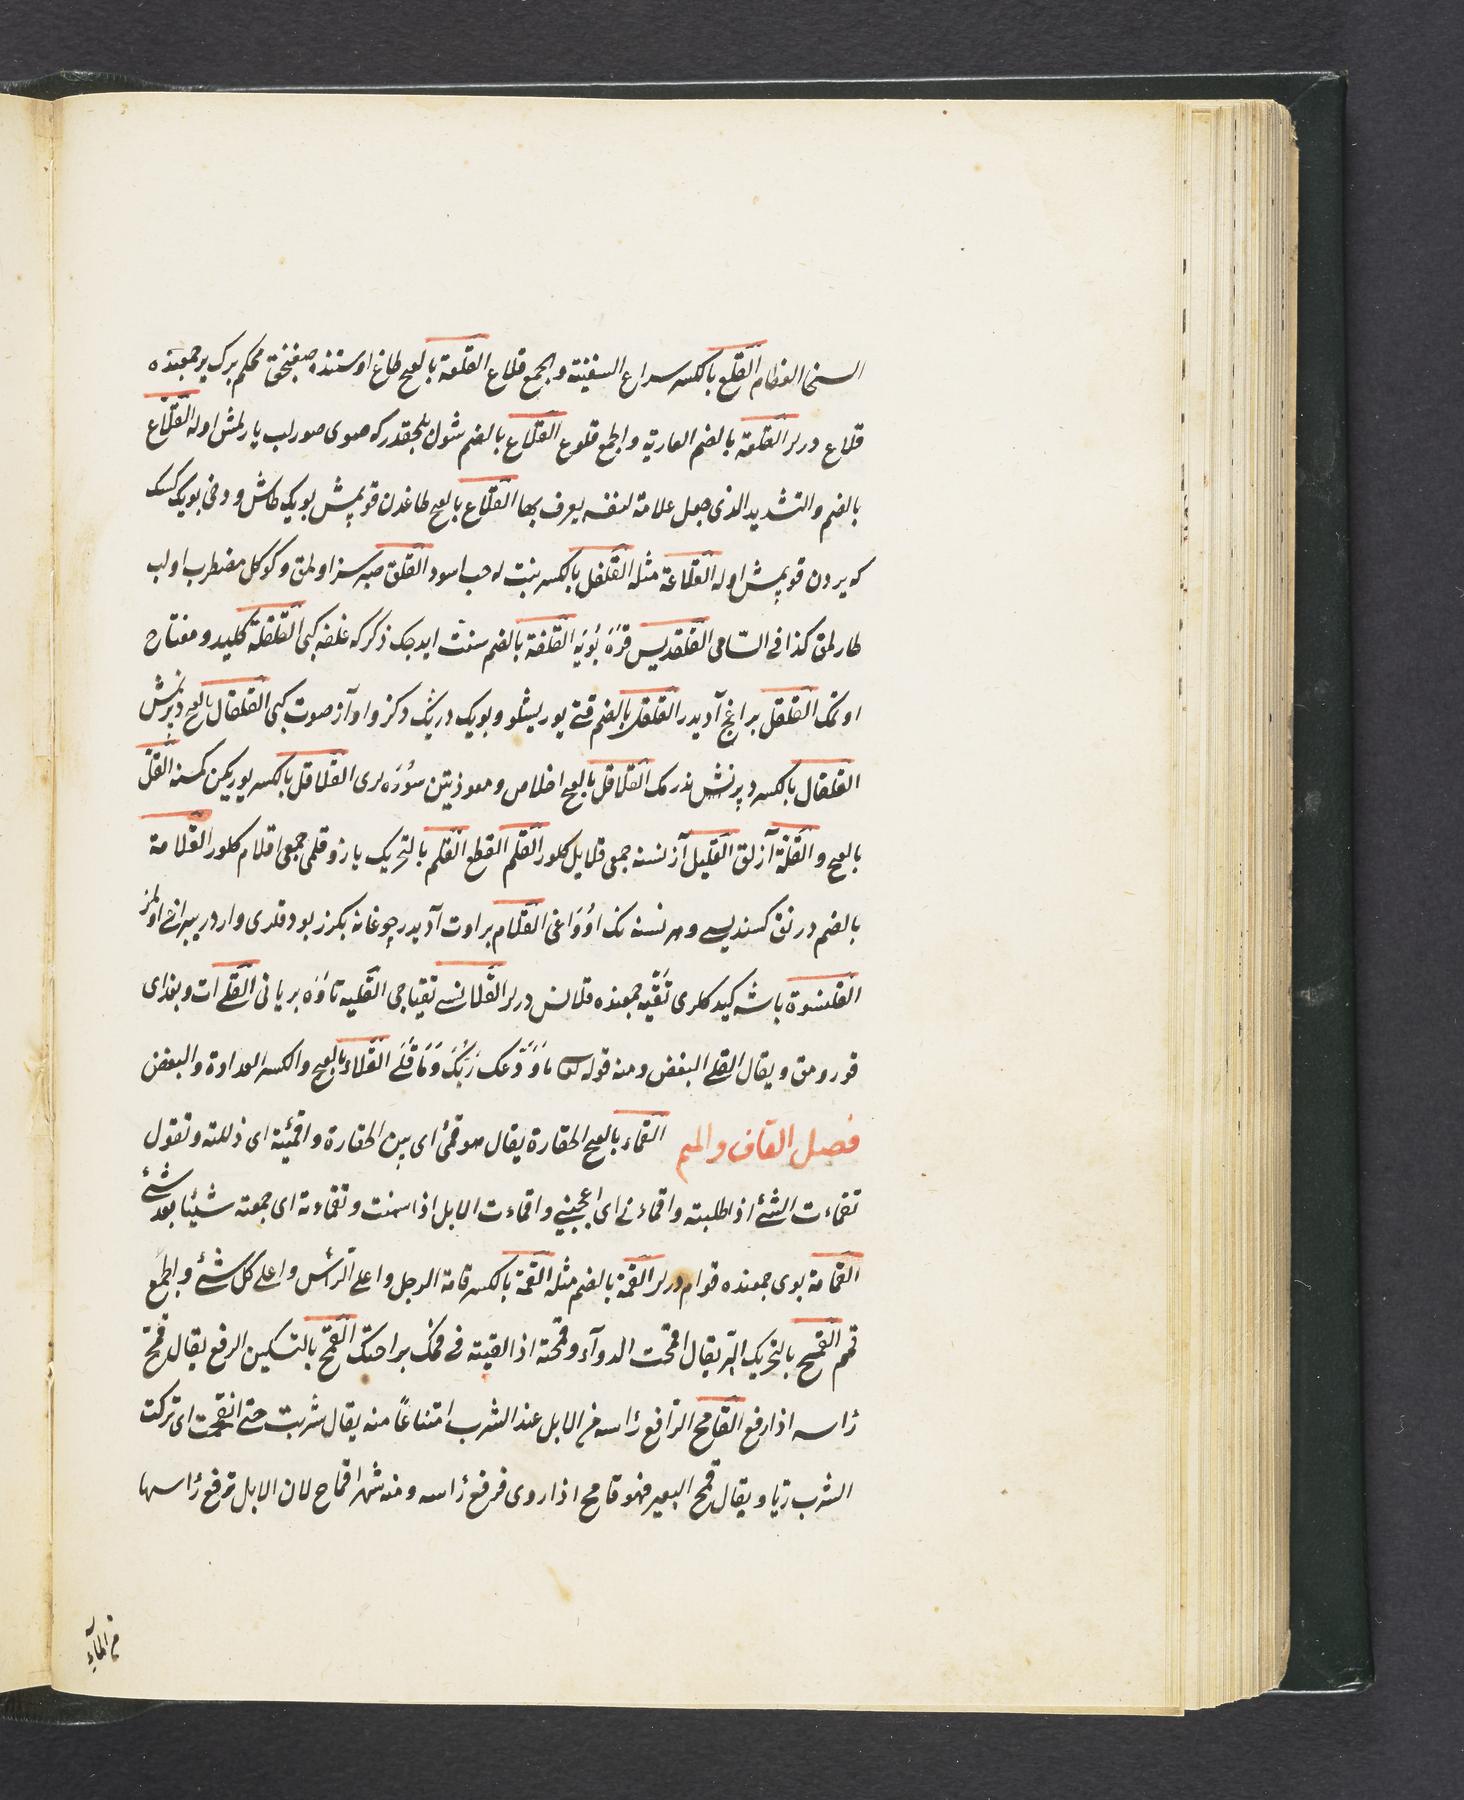 السنی العظام القلع بالکسر سراع السفینة والجمع قلاع القلعة بالفتح طاغ اوستنده صغینخق محکم برک یر جمعنده
قلاع درلر القلعة بالضم العاریة والجمع قلوع القلاع بالضم شول بلجقدرکه صوی صورلب یارلمش اوله القلاع
بالضم والتشدید الذی جعل علامة لنفسه یعرف بها القلاع بالفتح طاغدن قوپمش بویک طاش و دخی بویک کسک
که یردن قوپمش اوله القلاعة مثله القلقل بالکسر نبت له حب اسود القلق صبرسز اولمق و کوکل مضطرب اولب
طارلمق کذا فی السامی القلقدیس قره بویه القلفة بالضم سنت ایدجک ذکرکه غلفه کبی القلقلة کلید و مفتاح
اوتمک القلقل بر اغج آدیدر القلقل بالضم قتی یوریشلو و بویک دریک دکز و اوآز صوت کبی القلقال بالفتح دپرنمش
القلقال بالکسر دپرنش ندرمک القلاقل بالفتح اخلاص و معوذتین سوره لری القلاقل بالکسر یوریکن کمسنه القل
بالفتح و القلة آزلق القلیل آز نسنه جمعی قلایل کلور القلم القطع القلم بالتحریک یازو قلمی جمعی اقلام کلور القلامة
بالضم درنق کسندیسی و هر نسنه نک اوواغی القلام بر اوت آدیدر چوغانه بکزر بودقلری واردر یپراغی اولمز
القلنسوة باشه کیدکلری تقیه جمعنده قلانس درلر القلانسی تقیاجی القلیه تاوه بریانی القلی ات و بغدای
قورومق و یقال القلی البغض و منه قوله تعالی ما ودعک ربک وما قلی القلاء بالفتح والکسر العداوة والبغض
فصل القاف والمیم القماء بالفتح الحقارة یقال هو قمئ ای بین الحقارة واقمیته ای ذللته وتقول
تقماءت الشئ اذ اطلبته واقماءنی ای اعجبنی واقماءت الابل اذا سمنت وتقماءته ای جمعته شیئا بعد شئ
القامة بوی جمعنده قوام درلر القمة بالضم مثله القمة بالکسر قامة الرجل واعلی الرأس واعلی کل شئ والجمع
قمم القمح بالتحریک البر یقال اقمحت الدوآء وقمحته اذا القیته فی فمک براحتک القمح بالتسکین الرفع یقال قمح
رأسه اذا رفع القامح الرافع رأسه من الابل عند الشرب امتناعاً منه یقال شربت حتی انقمحت ای ترکت
الشرب ریا ویقال قمح البعیر فهو قامح اذا روی فرفع رأسه ومنه شهر اقماح لان الابل ترفع رأسها
من المآء